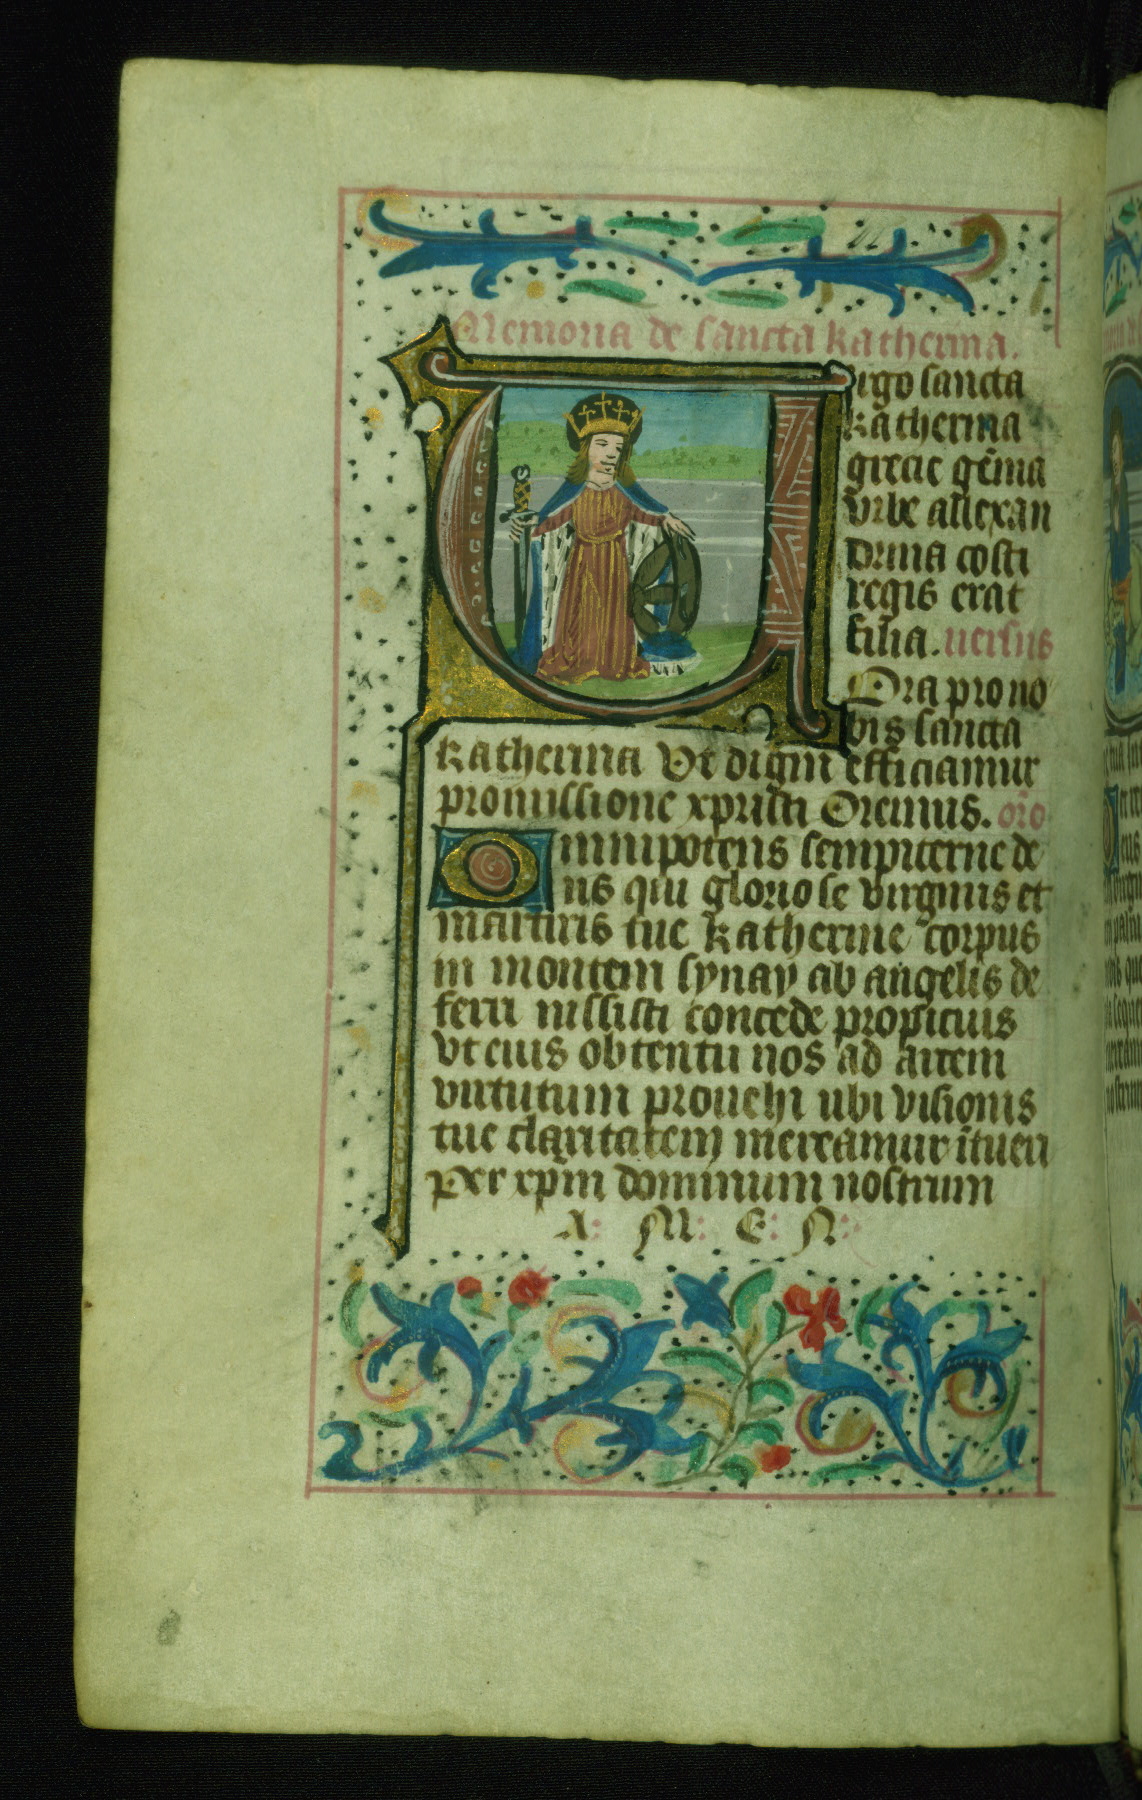 Memoria de sancta katherina.
Virgo sancta
katherina
grecie gēma
vrbe allexan
drina costi
regis erat
filia. uersus
Ora pro no
bis sancta
katherina Vt digni efficiamur
promissione xpristi Oremus. oro
Omnipotens sempiterne de
us qui gloriose virginis et
martiris tue katherine corpus
in montem synay ab angelis de
ferri iussisti concede propicius
vt eius obtentu nos ad arcem
virtutum prouehi ubi visionis
tue claritatem mereamur ītueri
Per xpm dominum nostrum
A: M: E: N: